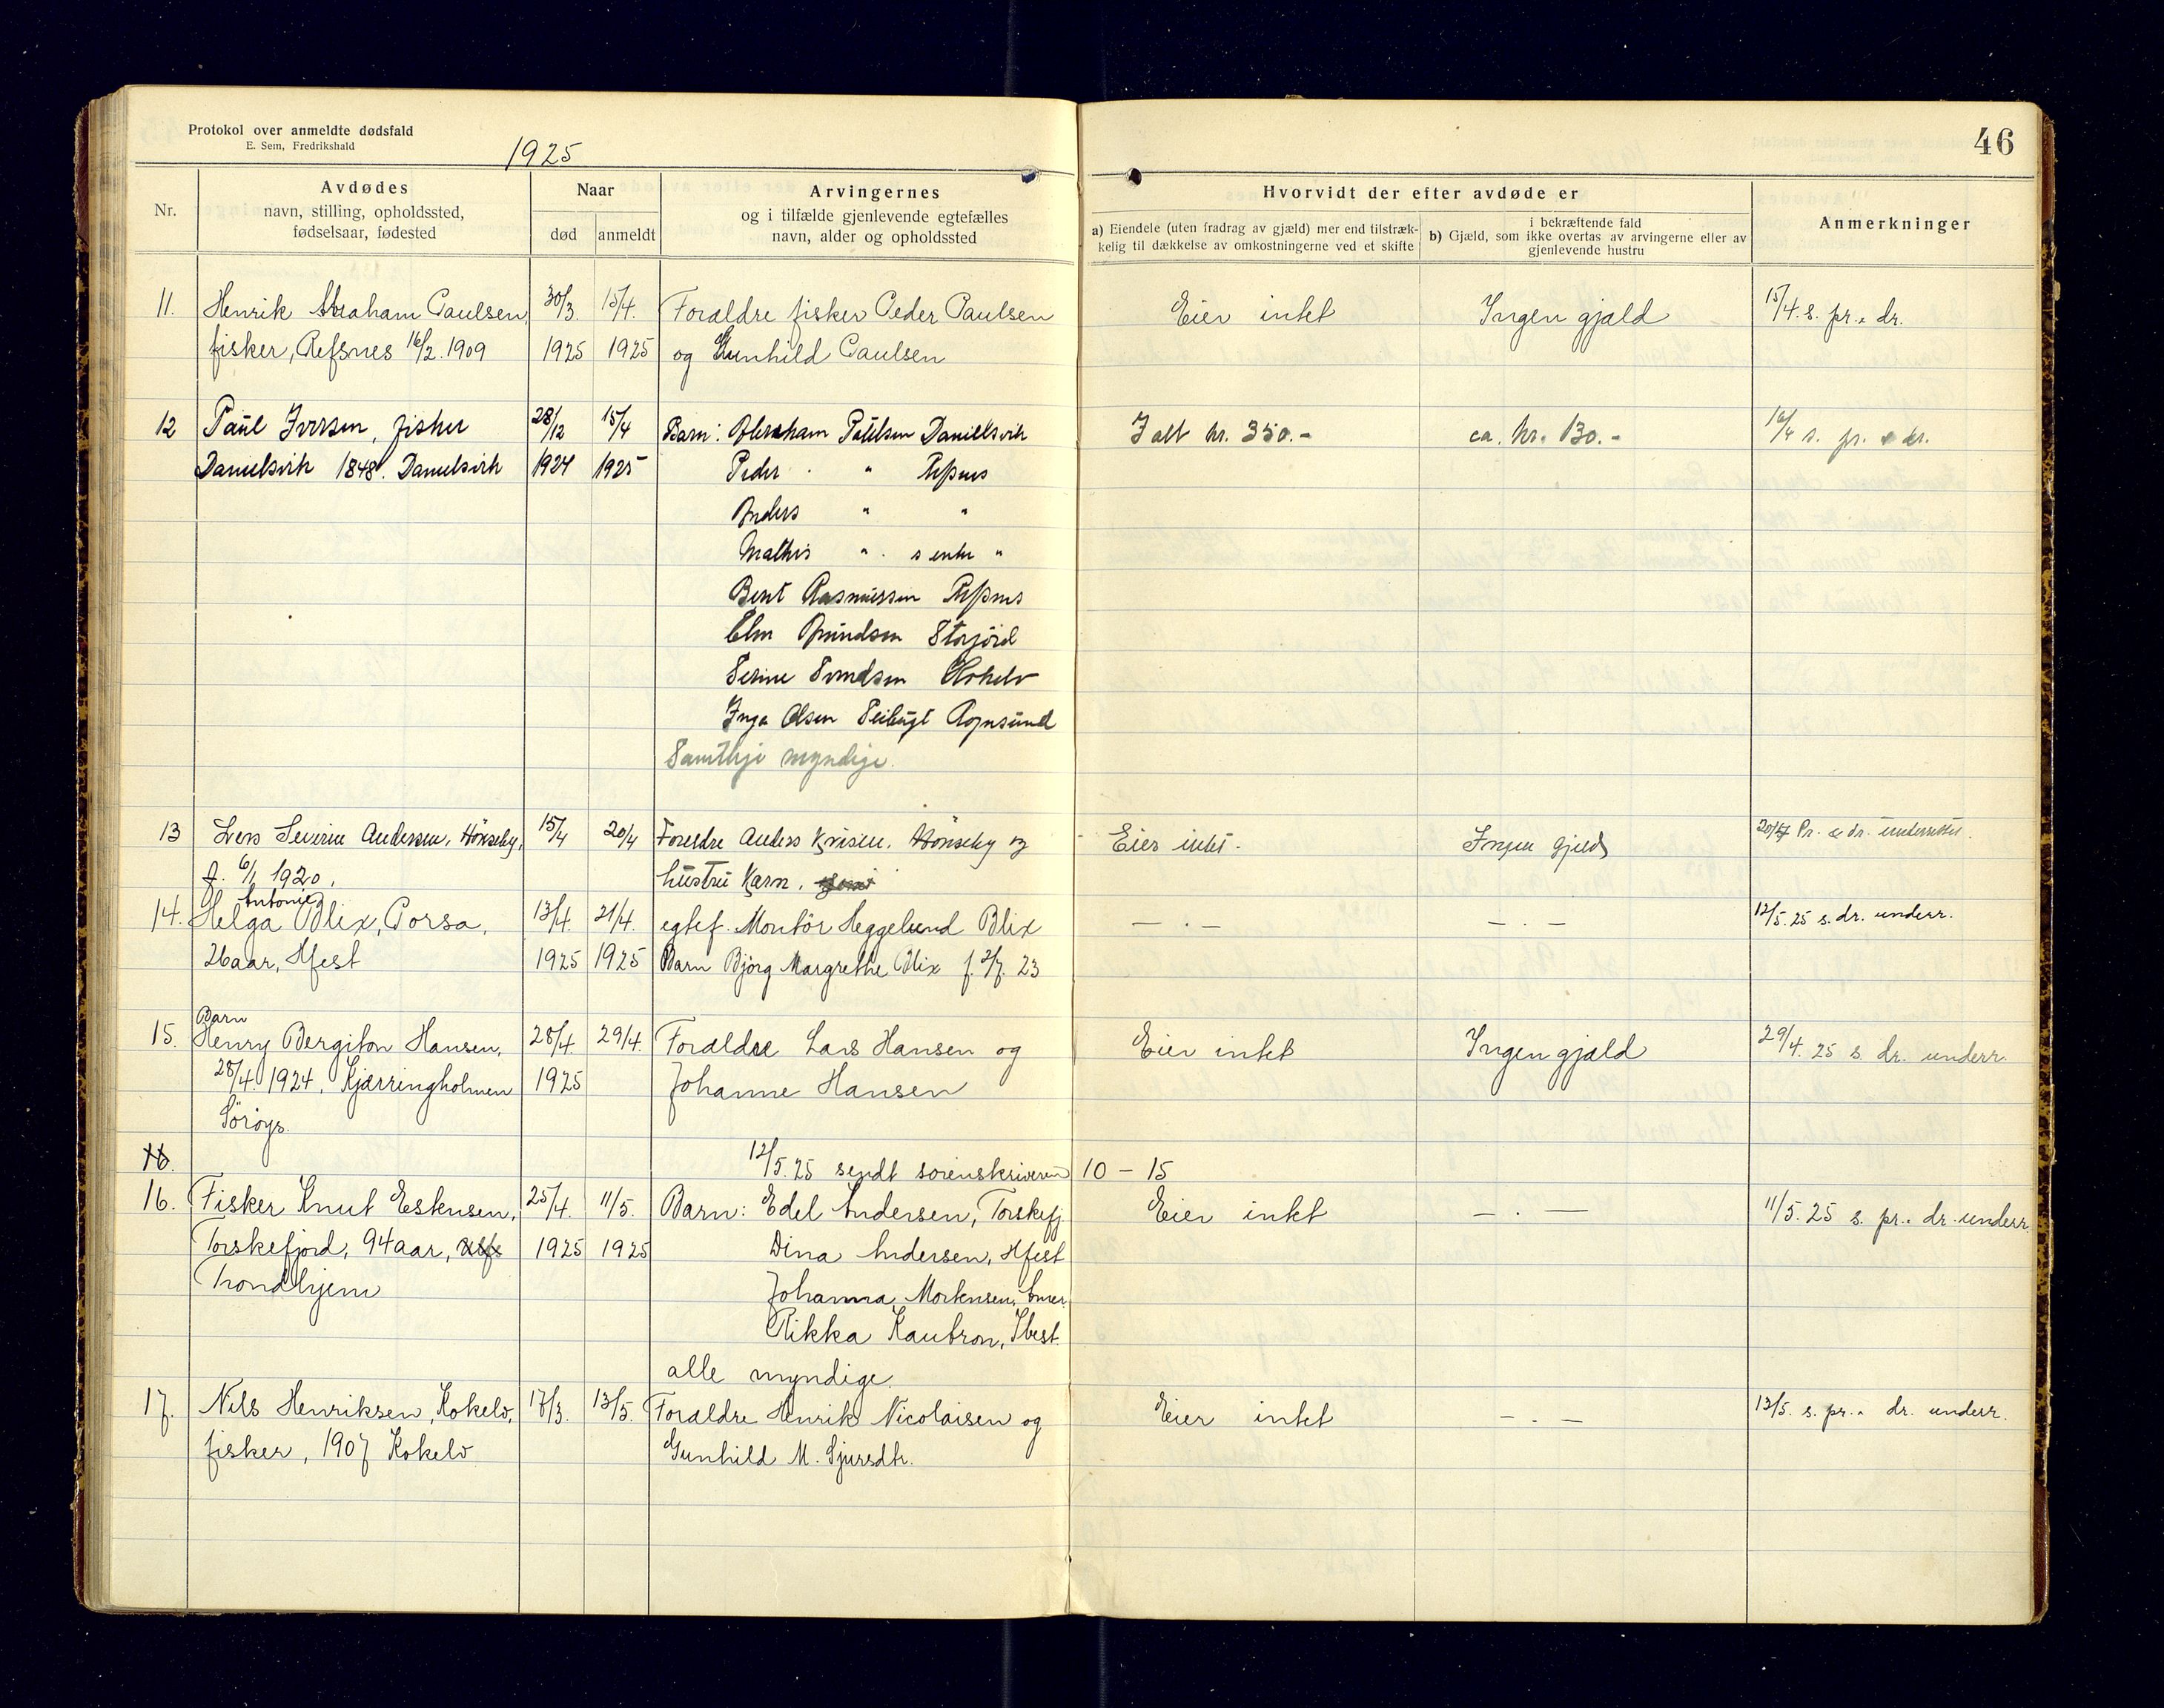 Protokol over anmeldte dødsfald
E. Sem, Fredrikshald
1925
46
Nr.
Avdødes
navn, stilling, opholdssted,
fødselsaar, fødested
Naar
død
anmeldt
Arvingernes
og i tilfælde gjenlevende egtefælles
navn, alder og opholdssted
Hvorvidt der efter avdøde er
a) Eiendele (uten fradrag av gjæld) mer end tilstræk-
kelig til dækkelse av omkostningerne ved et skifte
i bekræftende fald
b) Gjæld, som ikke overtas av arvingerne eller av
gjenlevende hustru
Anmerkninger
11. Henrik Abraham Paulsen, 30/3. 15/4. Forældre fisker Peder Paulsen Eier intet Ingen gjæld 15/4. s. pr. " dr.
fisker, Refsnes 16/2. 1909 1925 1925 og Gunhild Paulsen
12 Paul Iversen, fisker 28/12 15/4 Barn: Abraham Paulsen Danielsvik I alt kr. 350.- ca. kr. 130.- 16/4 s. pr. & dr.
Danielsvik 1848. Danielsvik 1924 1925 Peder " Refsnes
Anders " "
Mathis " "
Bent Rasmussen Refsnes
Amundsen Storjord
Kokelv
Inga Olsen Rognsund
Samtlige myndige.
13 Severin Andersen, Hönseby, 15/4 20/4 Foreldre Anders Hönseby og Eier intet. Ingen gjeld 20/4 Pr. & dr. underrettet.
f. 6/1 1920. hustru Karn.
Antonie
14. Helga Blix, Porsa, 13/4. 21/4. egtef. Montör Heggelund Blix — . — — . — 12/5. 25 s. dr. underr.
26 aar, Hfest 1925 1925 Barn Bjørg Margrethe Blix f. 2/7. 23
Barn
15. Henry Bergiton Hansen, 28/4. 29/4. Forældre Lars Hansen og Eier intet Ingen gjæld 29/4. 25 s. dr. underr.
28/4. 1924, Kjærringholmen 1925 Johanne Hansen
Sörøys.
16. 12/5. 25 sendt sorenskriveren 10 - 15
16. Fisker Knut Eskensen, 25/4. 11/5. Barn: Edel Andersen, Torskefj. Eier intet — . — 11/5. 25 s. pr. " dr. underr.
Torskefjord, 94 aar, 1925 1925 Dina Andersen, Hfest
Trondhjem Johanna Mortensen, Amer.
Rikka Kautron, Ibest.
alle myndige.
17. Nils Henriksen, Kokelv, 17/3. 13/5. Forældre Henrik Nicolaisen og Eier intet — . — 13/5. s. pr. " dr. underr.
fisker, 1907 Kokelv Gunhild M. Sjursdtr.